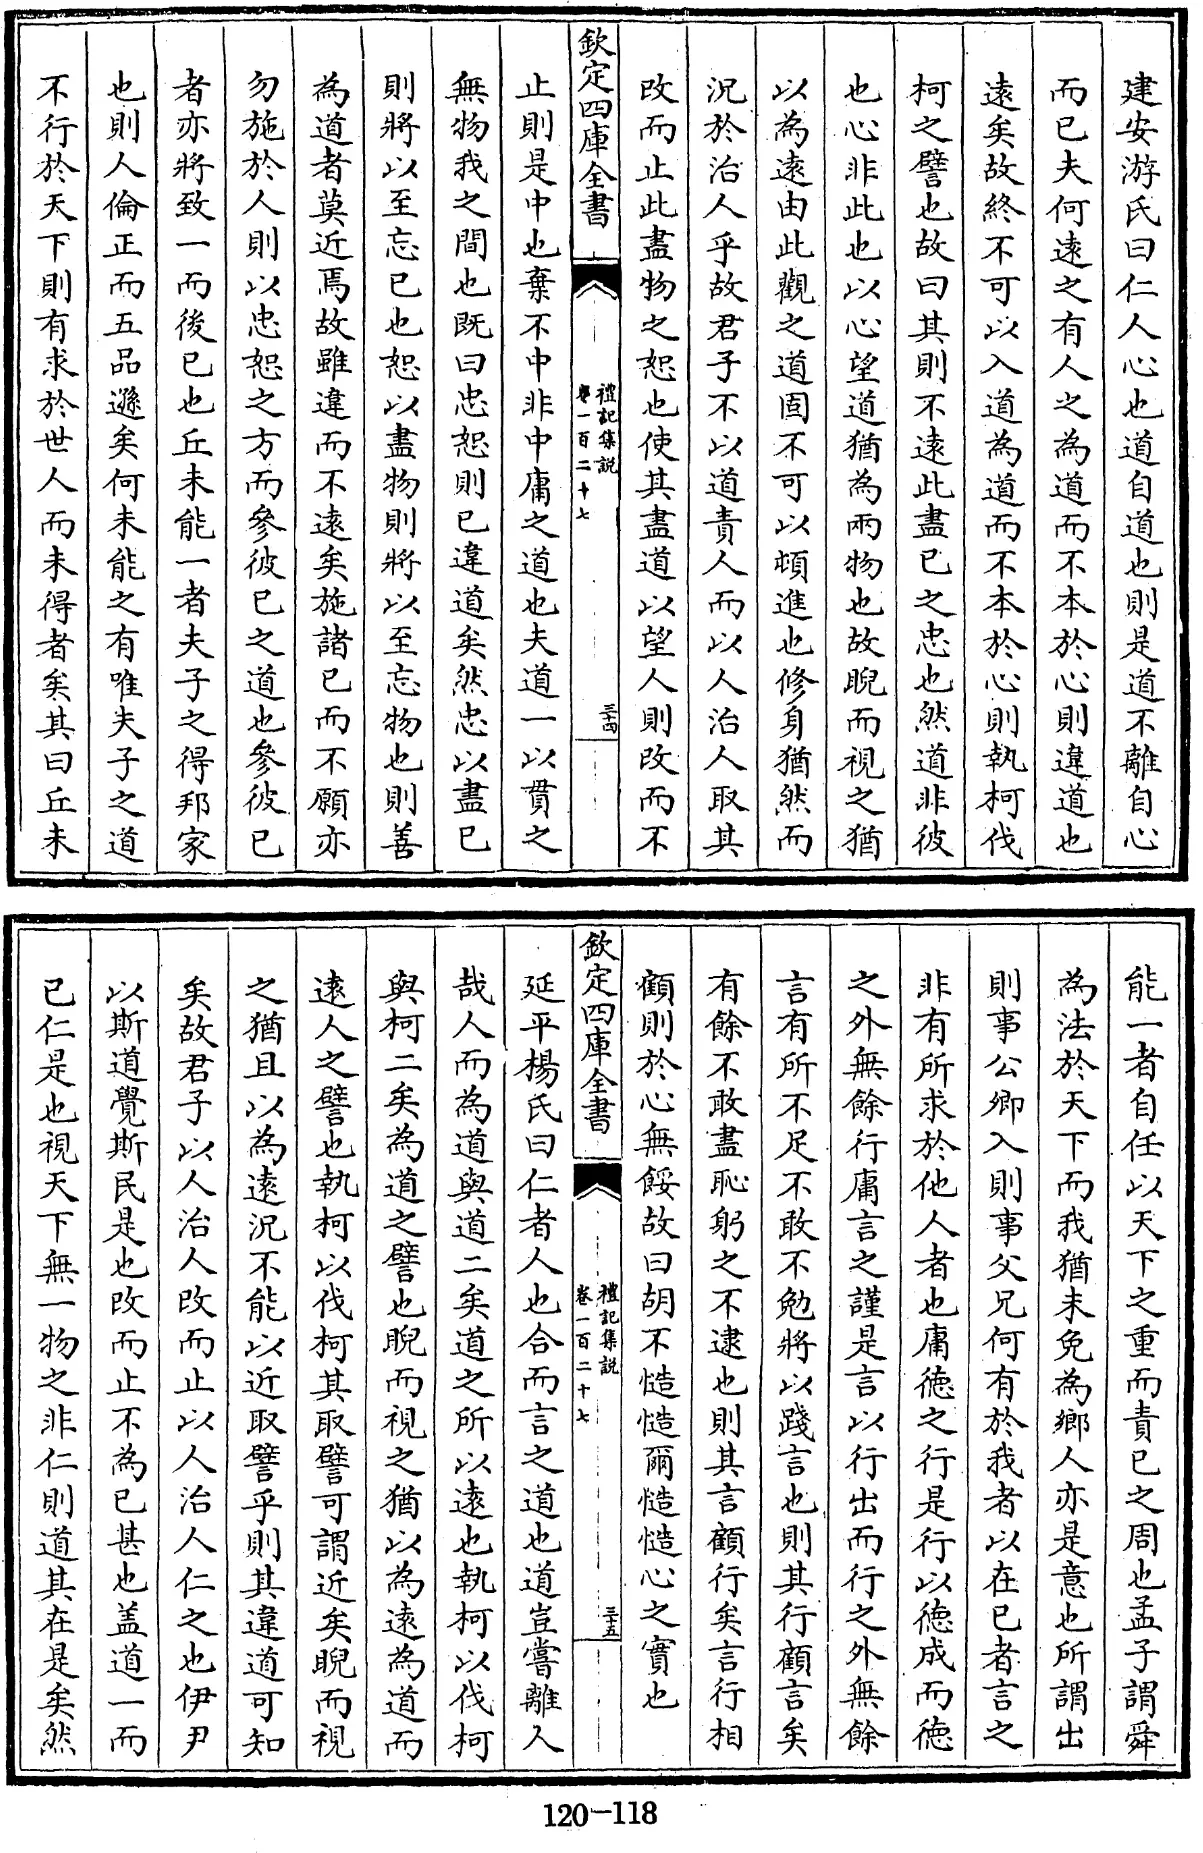 建安游氏曰仁人心也道自道也則是道不離自心
而已夫何遠之有人之為道而不本於心則違道也
遠矣故終不可以入道為道而不本於心則執柯伐
柯之譬也故曰其則不遠此盡已之忠也然道非彼
也心非此也以心望道猶為兩物也故睨而視之猶
以為遠由此觀之道固不可以頓進也修身猶然而
況於治人乎故君子不以道責人而以人治人取其
改而止此盡物之恕也使其盡道以望人則改而不
欽定四庫全書
禮記集説
卷一百二十七
三十四
止則是中也棄不中非中庸之道也夫道一以貫之
無物我之間也既曰忠恕則已違道矣然忠以盡已
則將以至忘已也恕以盡物則將以至忘物也則善
為道者莫近焉故雖違而不遠矣施諸已而不願亦
勿施於人則以忠恕之方而參彼已之道也參彼已
者亦將致一而後已也丘未能一者夫子之得邦家
也則人倫正而五品遜矣何未能之有唯夫子之道
不行於天下則有求於世人而未得者矣其曰丘未
能一者自任以天下之重而責已之周也孟子謂舜
為法於天下而我猶未免為鄉人亦是意也所謂出
則事公卿入則事父兄何有於我者以在已者言之
非有所求於他人者也庸徳之行是行以徳成而徳
之外無餘行庸言之謹是言以行出而行之外無餘
言有所不足不敢不勉將以踐言也則其行顧言矣
有餘不敢盡恥躬之不逮也則其言顧行矣言行相
顧則於心無餒故曰胡不慥慥爾慥慥心之實也
欽定四庫全書
禮記集説
卷一百二十七
三十五
延平楊氏曰仁者人也合而言之道也道豈嘗離人
哉人而為道與道二矣道之所以遠也執柯以伐柯
與柯二矣為道之譬也睨而視之猶以為遠為道而
遠人之譬也執柯以伐柯其取譬可謂近矣睨而視
之猶且以為遠況不能以近取譬乎則其違道可知
矣故君子以人治人改而止以人治人仁之也伊尹
以斯道覺斯民是也改而止不為已甚也盖道一而
已仁是也視天下無一物之非仁則道其在是矣然
120-118